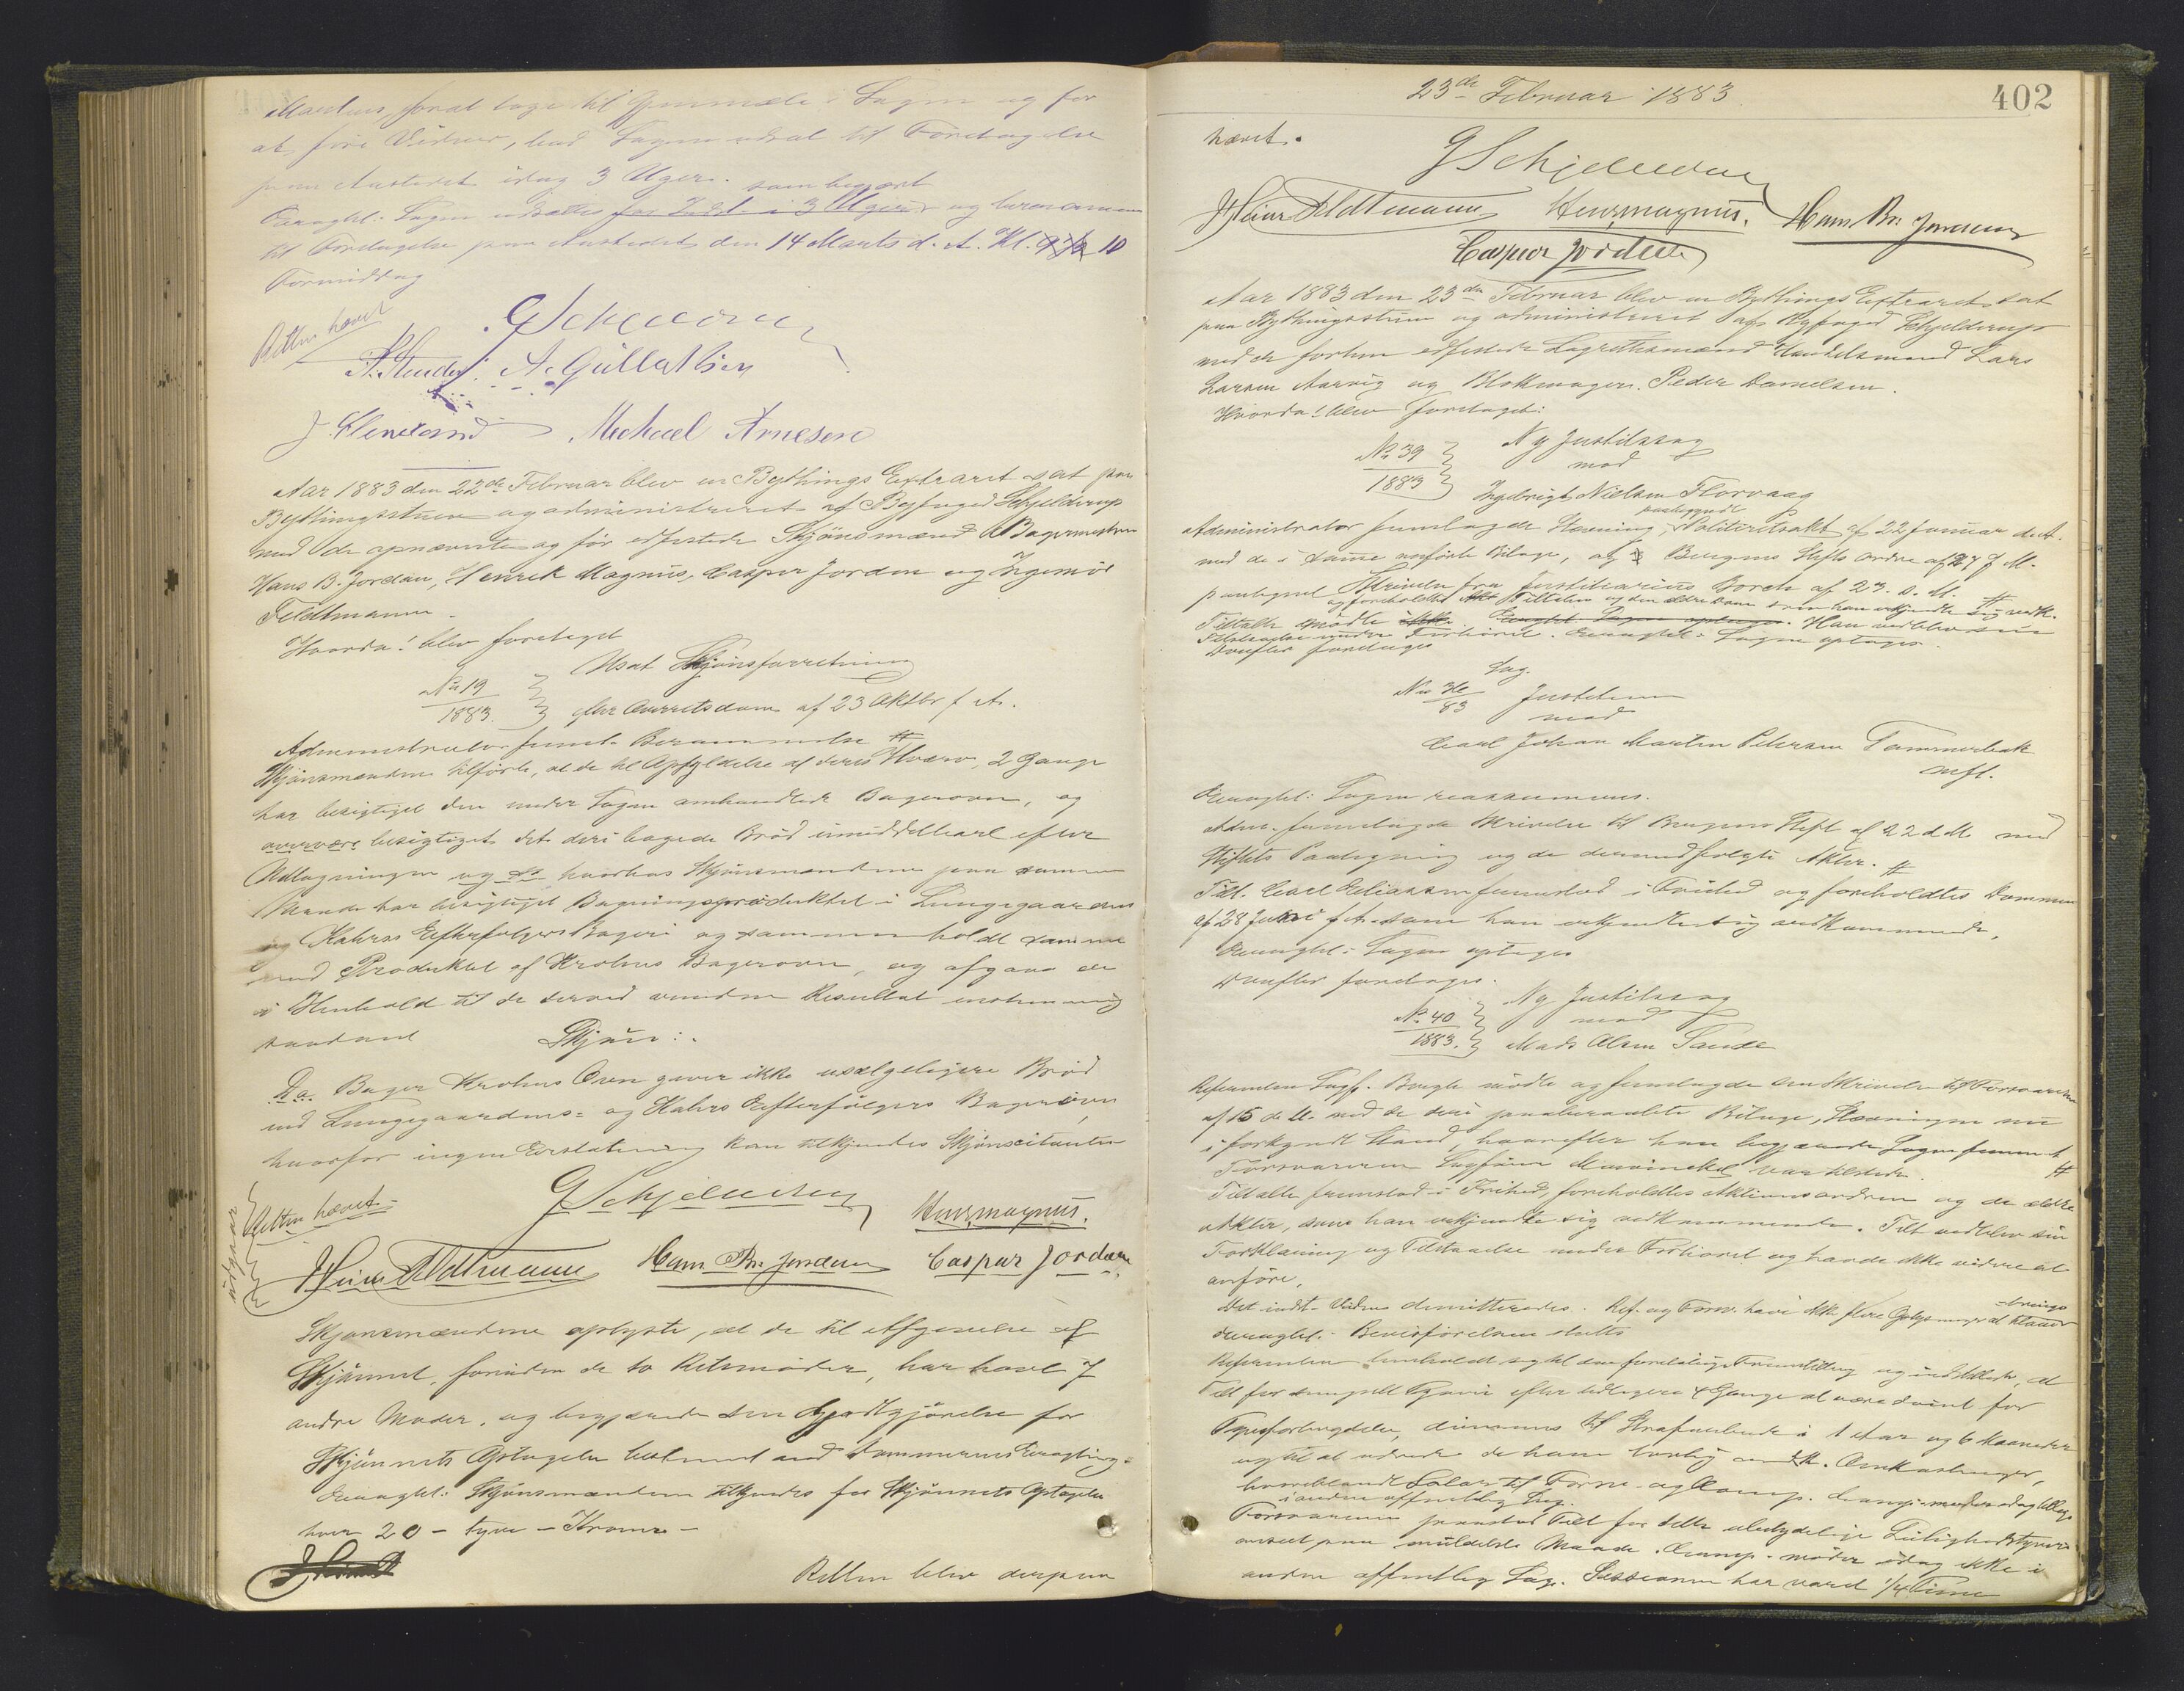 Martens, forat tage til Gjenmæle i Sagen og for
at føre Vidner, bad Sagen udsat til Foretagelse
paa Aastedet idag 3 Uger.
som begjært
Eragtet: Sagen udsættes for Indst. i 3 Uger og berammes
til Foretagelse paa Aastedet den 14 Marts d. A. Kl. 9½ 10
Formiddag
Retten hævet
GSchjelderup
A. Gullaksen
Michael Arnesen
Aar 1883 den 22de Februar blev en Bythings Extraret sat paa
Bythingsstuen og administreret af Byfoged Schjelderup
med de opnævnte og før edfæstede Skjønsmænd Bagermestrene
Hans B. Jordan, Henrik Magnus, Casper Jordan og Ingemøe
Feldtmann.
Hvorda! blev foretaget
No 19
1883.
Udsat Skjønsforretning
efter Overretsdom af 23 Oktbr f. A.
Administrator freml. Berammelse #
Skjønsmændene tilførte, at de til Opfyldelse af deres Hverv, 2 Gange
har besigtiget den under Sagen omhandlede Bagerovn, og
overvære besigtiget det deri bagede Brød umiddelbart efter
Udtagningen og da hvorhos Skjønsmændene paa samme
Maade har besigtiget Bagningsproduktet i Lungegaardens
og Kahrss Efterfølgers Bageri og sammenholdt samme
med Produktet af Krohns Bagerovn, og afgave de
i Henhold til de derved vundne Resultat enstemmig
saadant Skjøn:
Da Bager Krohns Ovn giver ikke usælgeligere Brød
end Lungegaardens- og Kahrs Efterfølgers Bagerovn,
hvorfor ingen Erstatning kan tilkjendes Skjønscitanten
Retten hævet
udgaar
GSchjelderup
Henr. Magnus.
J Heinr Feldtmann
Hans Br. Jordan
Caspar Jordan
Skjønsmændene oplyste, at de til Afgivelse af
Skjønnet, foruden de to Retsmøder, har havt 7
andre Møder, og begjærede den Godtgjørelse for
Skjønnets Optagelse bestemt ved Dommerens Eragtning.
Eragtet: Skjønsmændene tilkjendes for Skjønnets Optagelse
hver 20 - tyve - Kroner -
Retten blev derpaa
23de Februar 1883.
402
hævet.
GSchjelderup
J Heinr Feldtmann Henr. Magnus. Hans Br. Jordan
Caspar Jordan
Aar 1883 den 23de Februar blev en Bythings Extraret sat
paa Bythingsstuen og administreret af Byfoged Schjelderup
med de forhen edfæstede Lagrettesmænd Handelsmand Lars
Larsen Aarvig og Blokmager Peder Danielsen.
Hvorda! blev foretaget:
No 39
1883
Ny Justitssag
mod
Ingebrigt Nielsen Florvaag
paabegyndt
Administrator fremlagde Stævning, Politiretsakt af 22 Januar d. A.
med de i samme anførte Bilage, af Bergens Stifts Ordre af 27 f M.
paategnet Skrivelse fra Justitiarius Borch af 23. d. M. #
og foreholdtes Tiltalen og den ældre Dom som han vedkjendte sig vedk.
Tiltalte mødte Eragtet Sagen optages. Han vedblev sin
Tilstaaelse under Forhøret. Eragtet: Sagen optages.
Derefter foretages
Sag.
No 36
83
Justitssag
mod
Carl Johan Martin Petersen Tømmerbak
mfl.
Eragtet: Sagen reassumeres.
Adm. fremlagde Skrivelse til Bergens Stift af 22 d M med
Stiftets Paategning og de dermed fulgte Akter. #
Tilt. Carl Eliassen fremstod i Frihed og foreholdtes Dommen
af 28 Juni f A. som han vedkjendte sig vedkommende.
Eragtet: Sagen optages
Derefter foretages.
No. 40
1883.
Ny Justitssag
mod
Mads Olsen Sande
Referenten Sagf. Bergh mødte og fremlagde sin Skrivelse til Forsvareren
af 15 de M. med de deri paaberaabte Bilage, Stævningen nu
i forkyndt Stand, hvorefter han begjærede Sagen fremmet #
Forsvareren Sagfører Mowinckel var tilstede.
Tiltalte fremstod i Frihed, foreholdtes Aktionsordren og de ældre
Akter, som han vedkjendte sig vedkommende. Tilt vedblev sin
Forklaring og Tilstaaelse under Forhøret og havde ikke videre at
anføre.
Det indst. Vidne demitteredes. Ref. og Forsv. have ikke flere Oplysninger at tilveie
-bringe
Eragtet: Bevisførelsen sluttes
Referenten henholdt sig til den foreløbige Fremstilling og indstillede, at
Tilt for simpelt Tyveri efter tidligere 4 Gange at være dømt for
Tyveforbrydelse, dømmes til Strafarbeide i 1 Aar og 6 Maaneder
og til at udrede de ham lovlig vedk. Omkostninger,
hvoriblandt Salær til Forsv. og Comp.
i anden offentlig Sag.
Forsvareren paastod Tilt for dette ubetydelige Leilighedstyveri
anseet paa mildeste Maade. Comp. møder idag ikke i
anden offentlig Sag. Sessionen har varet ¼ Time